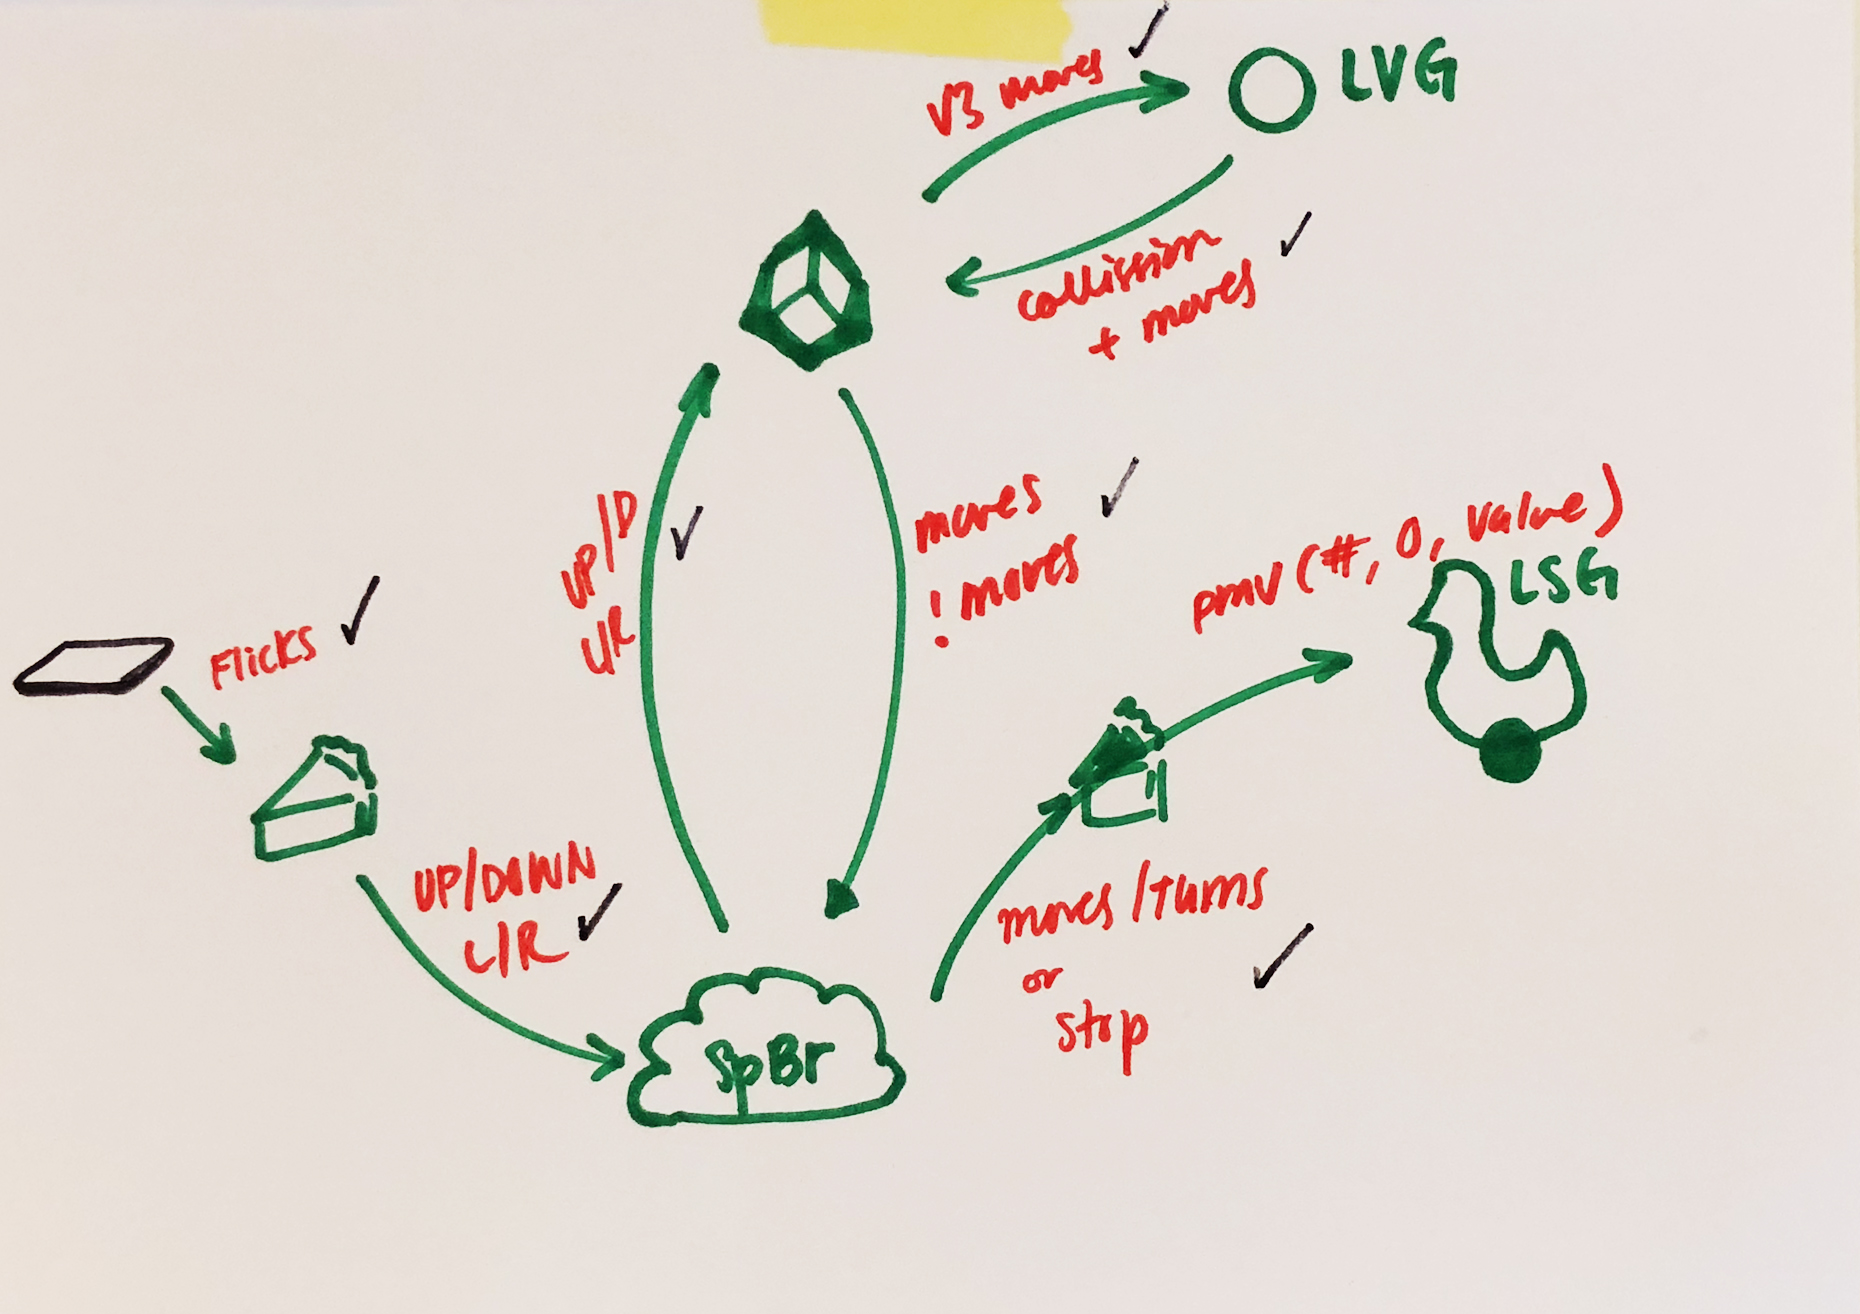 V3 moves
LVG
collission
+ moves
UP/D
L/R
moves
! moves
pmv (#, 0, value)
LSG
Flicks
UP/DOWN
L/R
moves/turns
or
stop
SpBr